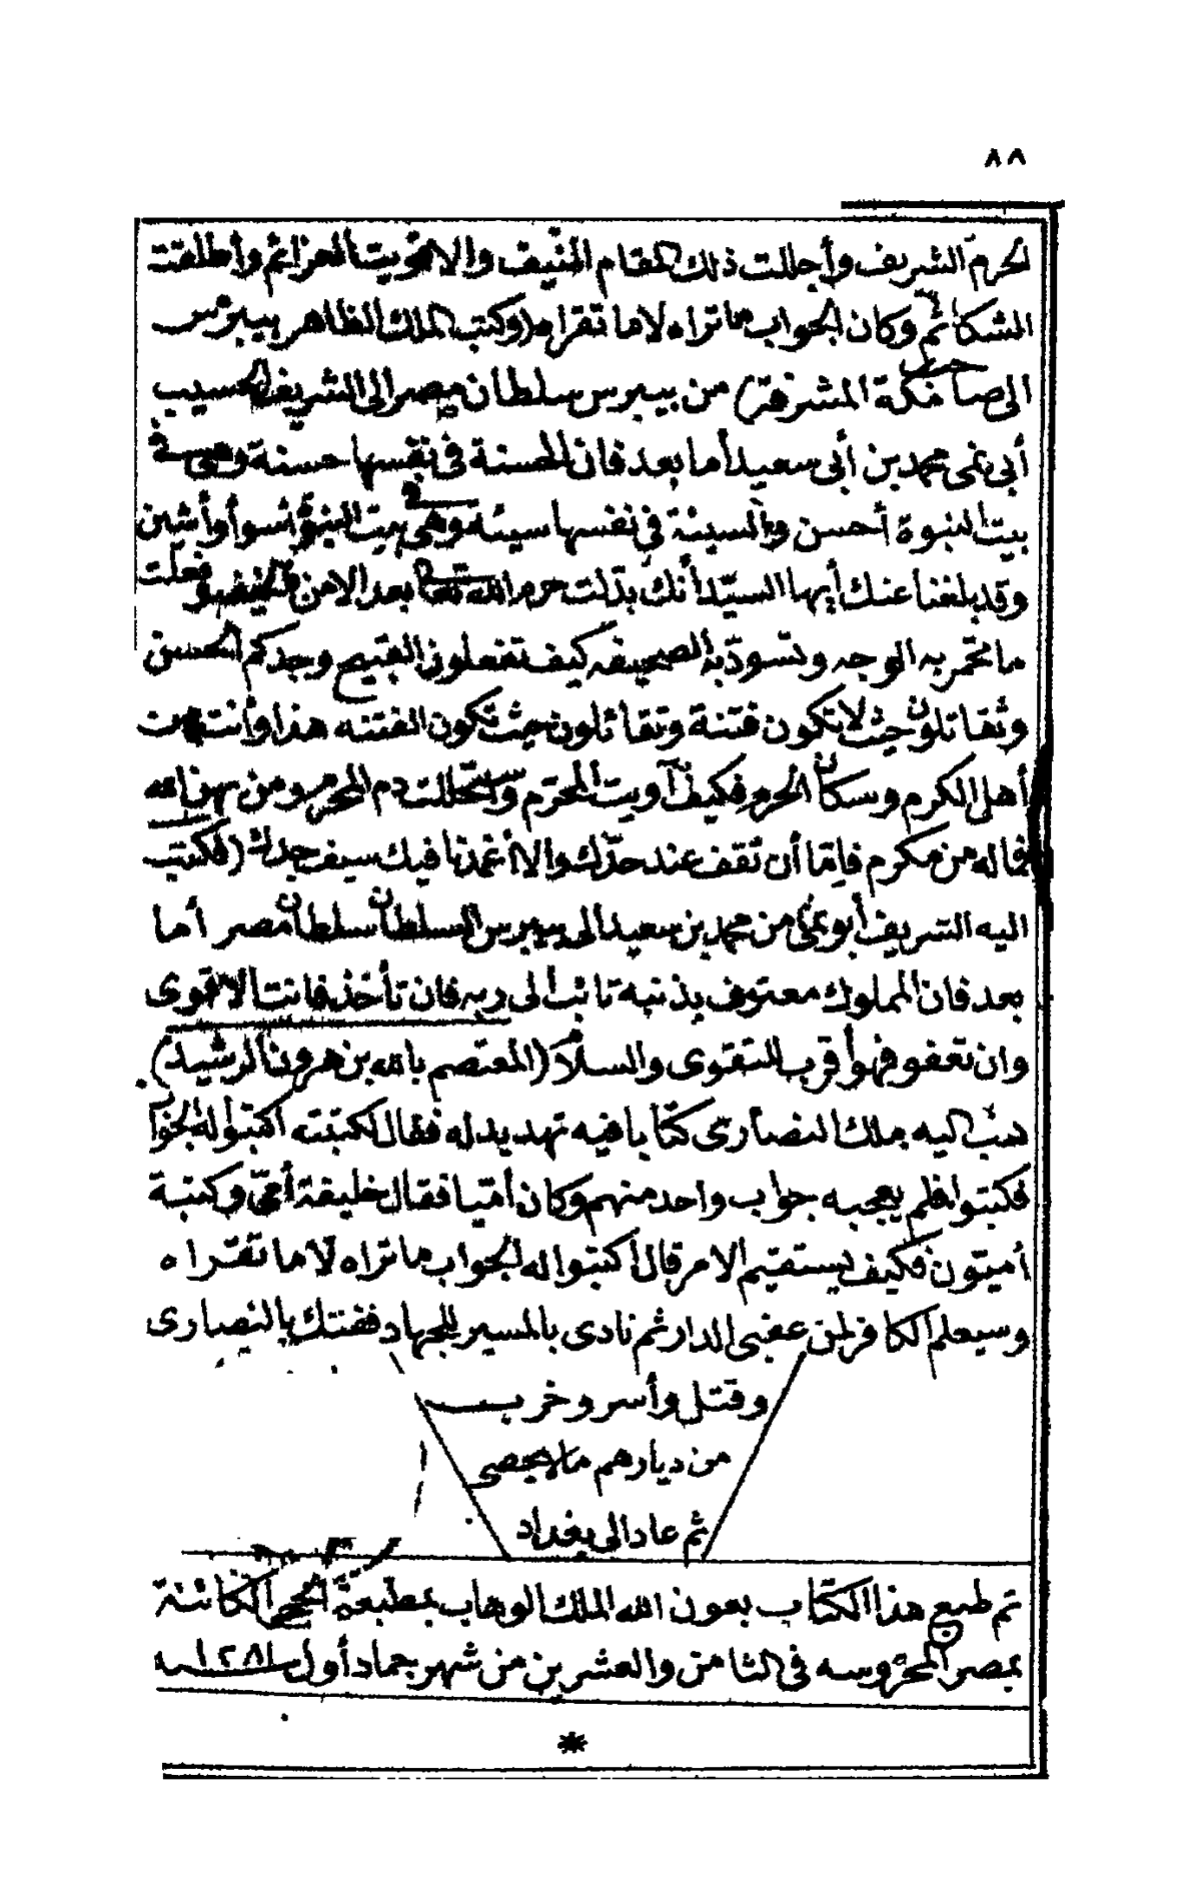 ٨٨
الحرم الشريف وأجللت ذلك المقام المنيف والا قويت العزائم وأطلقت
الشكائم وكان الجواب ما تراه لا ما تقراه (وكتب الملك الظاهر بيبرس
الى صاحب مكة المشرفة) من بيبرس سلطان مصر الى الشريف الحسيب
أبى نمى محمد بن أبى سعيد أما بعد فان الحسنة فى نفسها حسنة وهى فى
بيت النبوة أحسن والسيئة فى نفسها سيئة وهى فى بيت النبوة أسوأ وأشين
وقد بلغنا عنك أيها السيد أنك بدّلت حرم الله تعالى بعد الامن بالخيفة وفعلت
ما يحمر به الوجه وتسودّ به الصحيفه كيف تفعلون القبيح وجدكم الحسن
وتقاتلون حيث لا تكون فتنة وتقاتلون حيث تكون الفتنه هذا وأنت من
أهل الكرم وسكان الحرم فكيف آويت المجرم واستحللت دم المحرم ومن يهن الله
فما له من مكرم فاما أن تقف عند حدّك والا أغمدنا فيك سيف جدك (فكتب
اليه الشريف أبو نمى من محمد بن سعيد الى بيبرس السلطان سلطان مصر أما
بعد فان المملوك معترف بذنبه تائب الى ربه فان تأخذ فانت الاقوى
وان تعفو فهو أقرب للتقوى والسلام (المعتصم بالله بن هرون الرشيد)
كتب اليه ملك النصارى كتابا فيه تهديد له فقال لكتبته اكتبوا له الجواب
فكتبوا فلم يعجبه جواب واحد منهم وكان أمّيا فقال خليفة أمّى وكتبة
أميتون فكيف يستقيم الامر قال اكتبوا له الجواب ما تراه لا ما تقراه
وسيعلم الكافر لمن عقبى الدار ثم نادى بالمسير للجهاد ففتك بالنصارى
وقتل وأسر وخرب
من ديارهم ما لا يحصى
ثم عاد الى بغداد
تم طبع هذا الكتاب بعون الله الملك الوهاب بمطبعة الحجر الكائنة
بمصر المحروسه فى الثامن والعشرين من شهر جماد أول سنة ١٢٨١